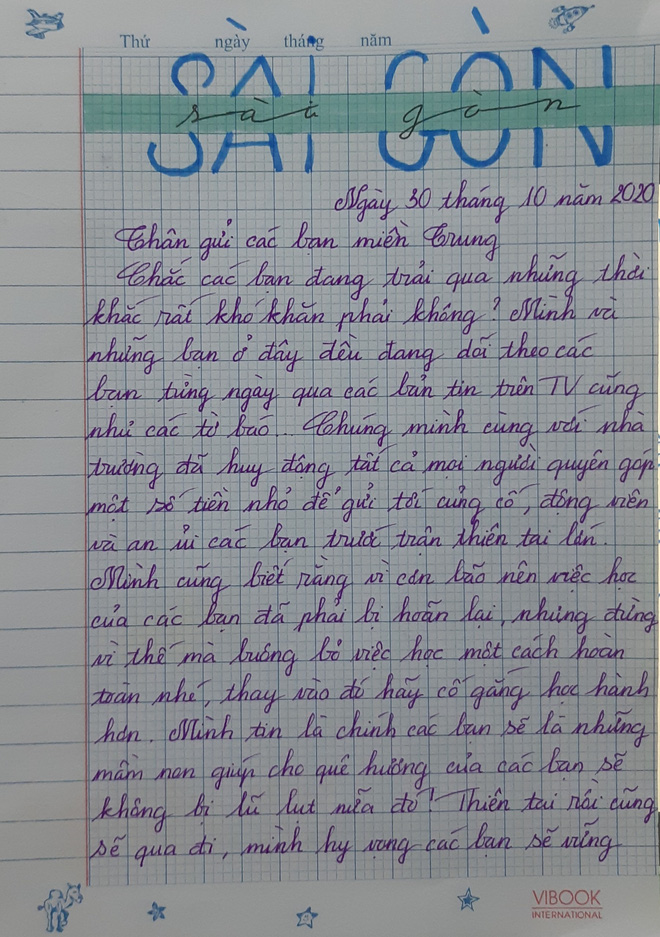 Thứ ngày tháng năm
SÀI GÒN
sài gòn
Ngày 30 tháng 10 năm 2020
Thân gửi các bạn miền Trung
Chắc các bạn đang trải qua những thời
khắc rất khó khăn phải không? Mình và
những bạn ở đây đều đang dõi theo các
bạn từng ngày qua các bản tin trên TV cũng
như các tờ báo... Chúng mình cùng với nhà
trường đã huy động tất cả mọi người quyên góp
một số tiền nhỏ để gửi tới củng cố, động viên
và an ủi các bạn trước trận thiên tai lớn.
Mình cũng biết rằng vì cơn bão nên việc học
của các bạn đã phải bị hoãn lại, nhưng đừng
vì thế mà buông bỏ việc học một cách hoàn
toàn nhé, thay vào đó hãy cố gắng học hành
hơn. Mình tin là chính các bạn sẽ là những
mầm non giúp cho quê hương của các bạn sẽ
không bị lũ lụt nữa đó! Thiên tai rồi cũng
sẽ qua đi, mình hy vọng các bạn sẽ vững
VIBOOK
INTERNATIONAL